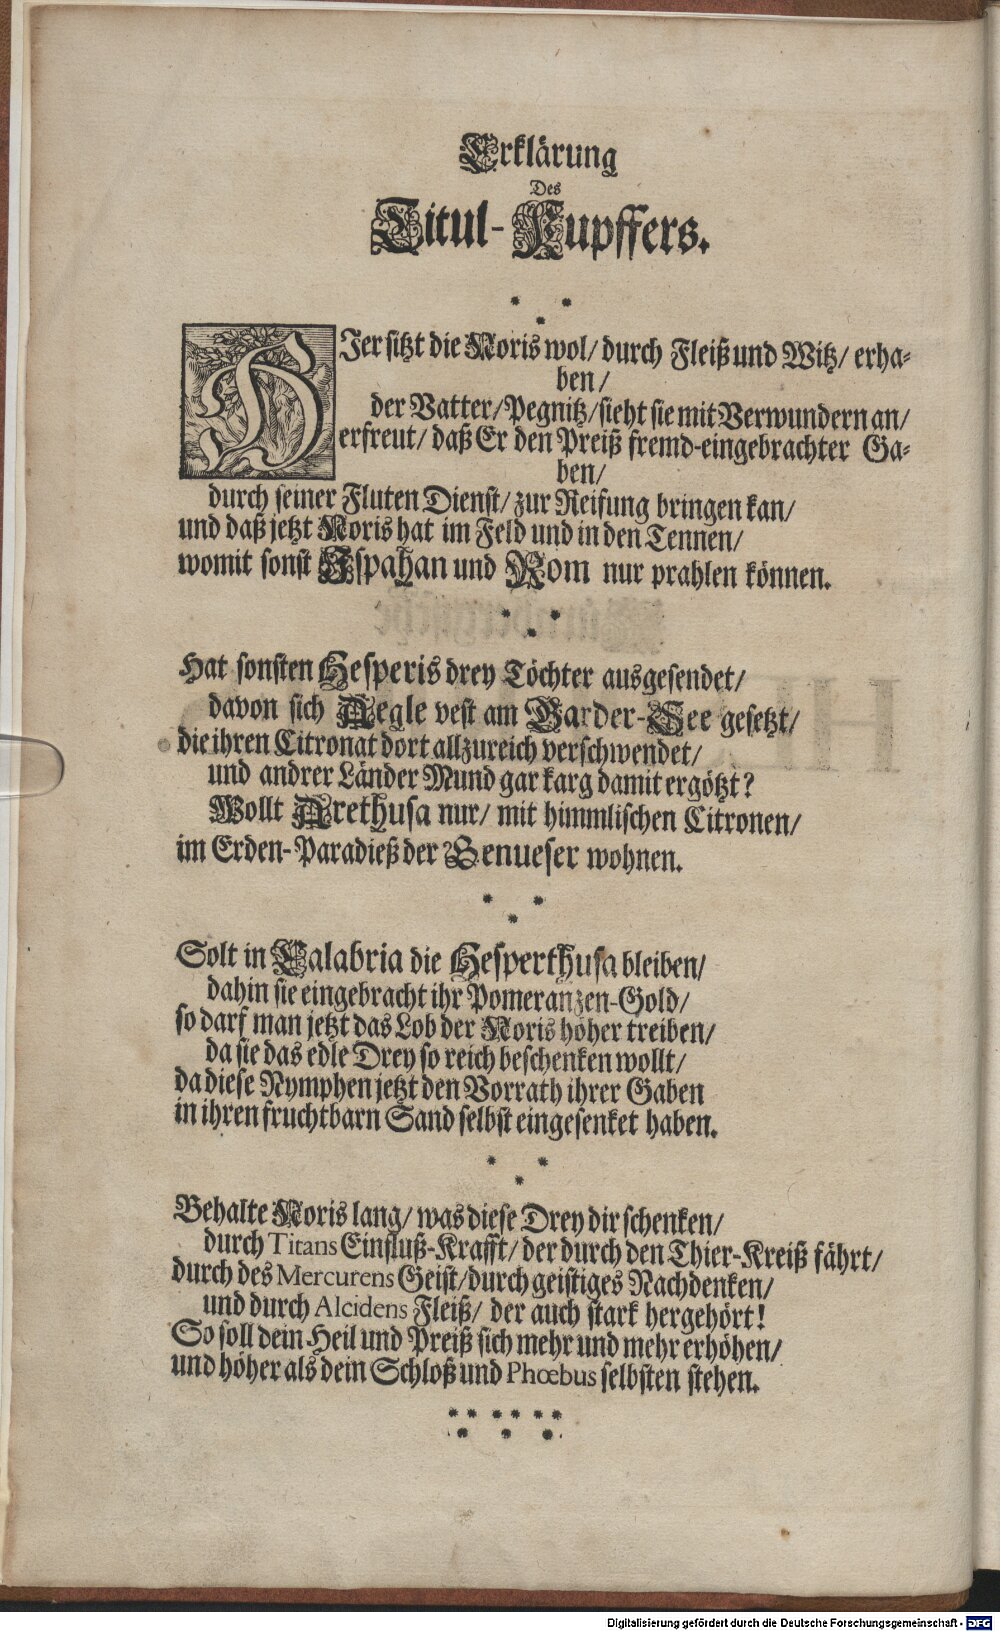 Erklärung
Des
Titul-Kupffers.
HJer sitzt die Noris wol/ durch Fleiß und Witz/ erha-
ben/
der Vatter/ Pegnitz/ sieht sie mit Verwundern an/
erfreut/ daß Er den Preiß fremd-eingebrachter Ga-
ben/
durch seiner Fluten Dienst/ zur Reifung bringen kan/
und daß jetzt Noris hat im Feld und in den Tennen/
womit sonst Ispahan und Rom nur prahlen können.
Hat sonsten Hesperis drey Töchter ausgesendet/
davon sich Aegle vest am Garder-See gesetzt/
die ihren Citronat dort allzureich verschwendet/
und andrer Länder Mund gar karg damit ergötzt?
Wollt Arethusa nur/ mit himmlischen Citronen/
im Erden-Paradieß der Genueser wohnen.
Solt in Calabria die Hesperthusa bleiben/
dahin sie eingebracht ihr Pomeranzen-Gold/
so darf man jetzt das Lob der Noris höher treiben/
da sie das edle Drey so reich beschenken wollt/
da diese Nymphen jetzt den Vorrath ihrer Gaben
in ihren fruchtbarn Sand selbst eingesenket haben.
Behalte Noris lang/ was diese Drey dir schenken/
durch Titans Einfluß-Krafft/ der durch den Thier-Kreiß fährt/
durch des Mercurens Geist/ durch geistiges Nachdenken/
und durch Alcidens Fleiß/ der auch stark hergehört!
So soll dein Heil und Preiß sich mehr und mehr erhöhen/
und höher als dein Schloß und Phœbus selbsten stehen.
Digitalisierung gefördert durch die Deutsche Forschungsgemeinschaft - DFG